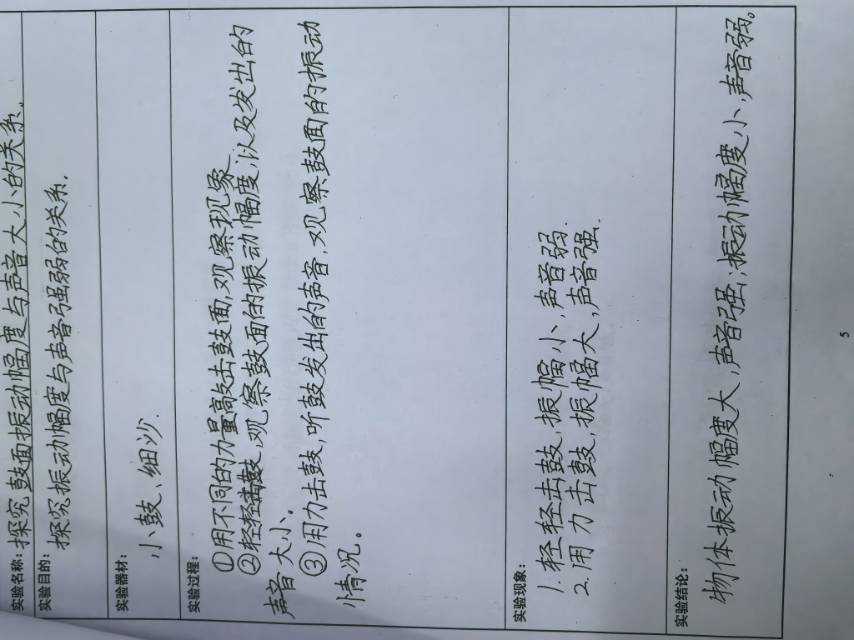 实验名称:探究鼓面振动幅度与声音大小的关系.
实验目的:
探究振动幅度与声音强弱的关系.
实验器材:
小鼓、细沙.
实验过程:
①用不同的力量敲击鼓面,观察现象
②轻轻击鼓,观察鼓面的振动幅度,以及发出的
声音大小。
③用力击鼓,听鼓发出的声音,观察鼓面的振动
情况。
实验现象:
1.轻轻击鼓,振幅小,声音弱.
2.用力击鼓,振幅大,声音强.
实验结论:
物体振动幅度大,声音强,振动幅度小,声音弱。
5